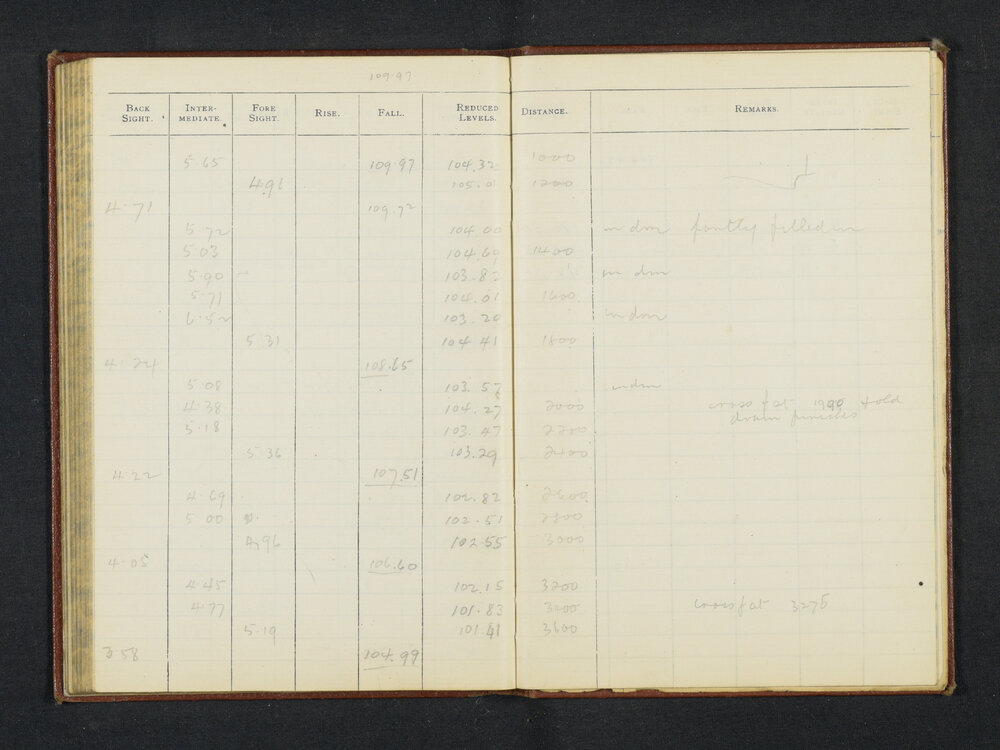 109.97
BACK SIGHT. INTER-MEDIATE. FORE SIGHT. RISE. FALL. REDUCED LEVELS. DISTANCE. REMARKS.
5.65 109.97 104.32 1000
4.91 105.01 1200
4.71 109.72
5.72 104.00 in drn partly filled in
5.03 104.69 1400
5.90 103.82 in drn
5.71 104.01 1600
6.52 103.20 in drn
5.31 104.41 1800
4.24 108.65
5.08 103.57 in drn
4.38 104.27 2000 cross f at 1990 & old
5.18 103.47 2200 drain finishes
5.36 103.29 2400
4.22 107.51
4.69 102.82 2600
5.00 102.51 2800
4.96 102.55 3000
4.05 106.60
4.45 102.15 3200
4.77 101.83 3400 cross f at 3275
5.19 101.41 3600
3.58 104.99